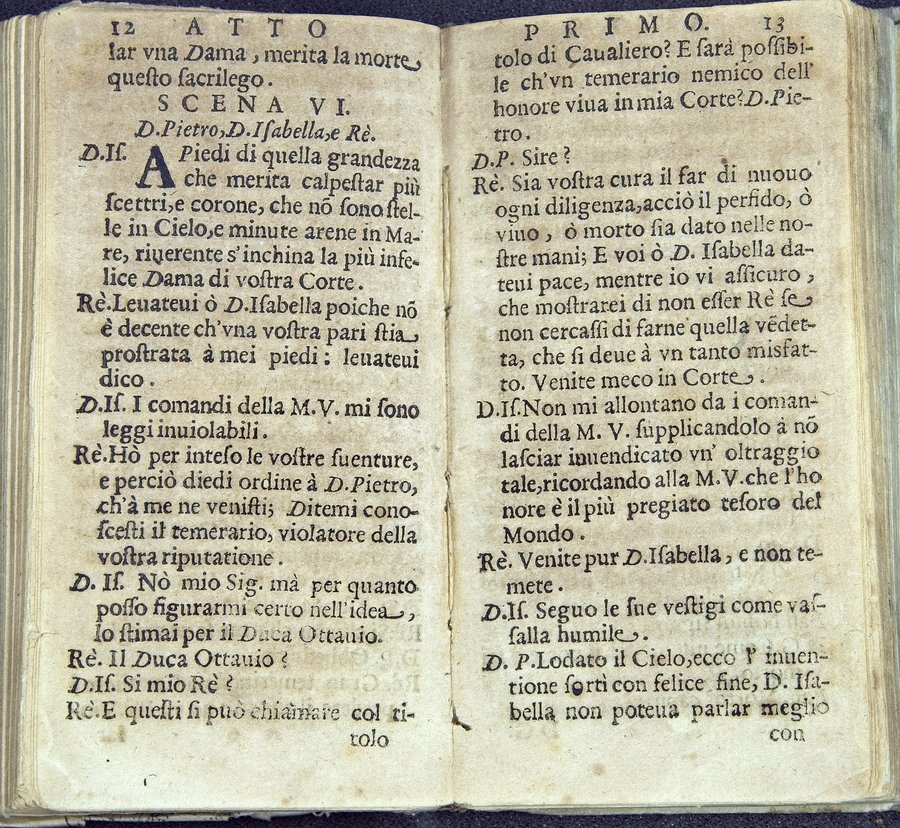 12 ATTO
lar vna Dama, merita la morte
questo ſacrilego.
SCENA VI.
D.Pietro, D.Iſabella, e Rè.
D.Iſ. A Piedi di quella grandezza
che merita calpeſtar più
ſcettri, e corone, che nõ ſono ſtel-
le in Cielo, e minute arene in Ma-
re, riuerente s'inchina la più infe-
lice Dama di voſtra Corte.
Rè. Leuateui ò D.Iſabella poiche nõ
è decente ch'vna voſtra pari ſtia
proſtrata à mei piedi: leuateui
dico.
D.Iſ. I comandi della M.V. mi ſono
leggi inuiolabili.
Rè. Hò per inteſo le voſtre ſuenture,
e perciò diedi ordine à D.Pietro,
ch'à me ne veniſti; Ditemi cono-
ſceſti il temerario, violatore della
voſtra riputatione.
D. Iſ. Nò mio Sig. mà per quanto
poſſo figurarmi certo nell'idea,
lo ſtimai per il Duca Ottauio.
Rè. Il Duca Ottauio?
D.Iſ. Si mio Rè?
Rè. E queſti ſi può chiamare col ti-
tolo
PRIMO. 13
tolo di Caualiero? E ſarà poſſibi-
le ch'vn temerario nemico dell'
honore viua in mia Corte? D.Pie-
tro.
D.P. Sire?
Rè. Sia voſtra cura il far di nuouo
ogni diligenza, acciò il perfido, ò
viuo, ò morto ſia dato nelle no-
ſtre mani; E voi ò D. Iſabella da-
teui pace, mentre io vi aſſicuro,
che moſtrarei di non eſſer Rè ſe
non cercaſſi di farne quella vẽdet-
ta, che ſi deue à vn tanto misfat-
to. Venite meco in Corte.
D.Iſ. Non mi allontano da i coman-
di della M. V. ſupplicandolo à nõ
laſciar inuendicato vn' oltraggio
tale, ricordando alla M.V. che l'ho
nore è il più pregiato teſoro del
Mondo.
Rè. Venite pur D.Iſabella, e non te-
mete.
D.Iſ. Seguo le ſue veſtigi come vaſ-
ſalla humile.
D. P. Lodato il Cielo, ecco l' inuen-
tione ſortì con felice fine, D. Iſa-
bella non poteua parlar meglio
con